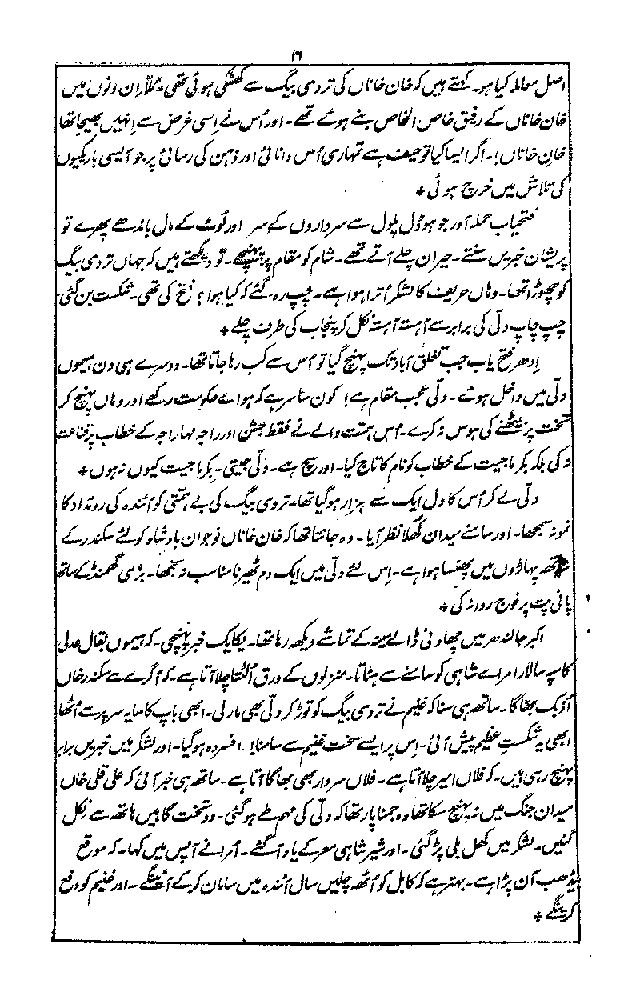 ۱۶
اصل معاملہ کیا ہو۔ کہتے ہیں کہ خان خاناں کی تردی بیگ سے کھٹکی ہوئی تھی۔ مُلّا اِن دنوں میں
خان خاناں کے رفیق خاص الخاص بنے ہوئے تھے۔ اور اُس نے اِسی غرض سے اِنہیں بھیجا تھا
خان خاناں! اگر ایسا کیا تو حیف ہے تمہاری اُس دانائی اور ذہن کی رسائی پر جو ایسی باریکیوں
کی تلاش میں خرچ ہوئی *
فتحیاب حملہ آور جو ہوڈل پلول سے سرداروں کے سر اور لُوٹ کے مال باندھے پھرے تو
پریشان خبریں سُنتے۔ حیران چلے آتے تھے۔ شام کو مقام پر پہنچے۔ تو دیکھتے ہیں کہ جہاں تردی بیگ
کو چھوڑا تھا۔ وہاں حریف کا لشکر اُترا ہوا ہے۔ چپ رہ گئے کہ کیا ہوا؟ فتح کی تھی۔ شکست بن گئی
چپ چاپ دلّی کی برابر سے آہستہ آہستہ نکل کر پنجاب کی طرف چلے *
اِدھر فتح یاب جب تغلق آباد تک پہنچ گیا تو اُس سے کب رہا جاتا تھا۔ دوسرے ہی دن ہیموں
دلّی میں داخل ہوئے۔ دلّی عجب مقام ہے! کون سا سر ہے کہ ہوائے حکومت رکھے اور وہاں پہنچ کر
تخت پر بیٹھنے کی ہوس نہ کرے۔ اُس ہمت والے نے فقط جشن اور راجہ مہاراجہ کے خطاب پر قناعت
نہ کی بلکہ بکرماجیت کے خطاب کو نام کا تاج کیا۔ اور سچ ہے۔ دلّی جیتی۔ بکرماجیت کیوں نہ ہوں *
دلّی لے کر اُس کا دل ایک سے ہزار ہو گیا تھا۔ تردی بیگ کی بے ہمتی کو آئندہ کی روئداد کا
نمونہ سمجھا۔ اور سامنے میدان کھلا نظر آیا۔ وہ جانتا تھا کہ خان خاناں نوجوان بادشاہ کو لئے سکندر کے
ساتھ پہاڑوں میں پھنسا ہوا ہے۔ اِس لئے دلّی میں ایک دم ٹھیرنا مناسب نہ سمجھا۔ بڑی گھمنڈ کے ساتھ
پانی پت پر فوج روانہ کی *
اکبر جالندھر میں چھاؤنی ڈالے مینہ کے تماشے دیکھ رہا تھا۔ یکایک خبر پہنچی۔ کہ ہیموں بقال عدلی
کا سپہ سالار امرائے شاہی کو سامنے سے ہٹاتا۔ منزلوں کے ورق اُلٹتا چلا آتا ہے۔ کہ آگرے سے سکندر خاں
اُزبک بھاگا۔ ساتھ ہی سُنا کہ غنیم نے تردی بیگ کو توڑ کر دلّی بھی مار لی۔ ابھی باپ کا سایہ سر پر سے اُٹھا
ابھی یہ شکستِ عظیم پیش آئی۔ اِس پر ایسے سخت غنیم سے سامنا! افسردہ ہو گیا۔ اور لشکر میں خبریں برابر
پہنچ رہی ہیں۔ کہ فلاں امیر چلا آتا ہے۔ فلاں سردار بھی بھاگا آتا ہے۔ ساتھ ہی خبر آئی کہ علی قلی خاں
میدانِ جنگ میں نہ پہنچ سکا تھا وہ جمنا پار تھا کہ دلّی کی مہم طے ہو گئی۔ دو تخت گاہیں ہاتھ سے نکل
گئیں۔ لشکر میں کھل بلی پڑ گئی۔ اور شیر شاہی معرکے یاد آ گئے۔ اُمرا نے آپس میں کہا۔ کہ موقع
بیڈھب آن پڑا ہے۔ بہتر ہے کہ کابل کو اُٹھ چلیں سالِ آئندہ میں سامان کر کے آئینگے۔ اور غنیم کو دفع
کرینگے *